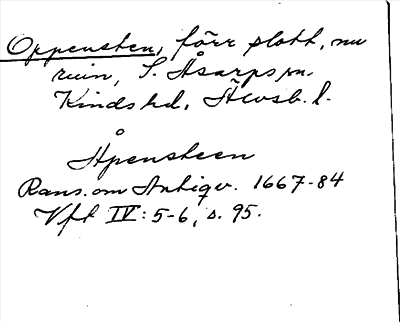 Oppensten, förr slott, nu
ruin, S. Åsarps sn.
Kinds hd, Älvsb. l.
Åpensteen
Rans. om Antiqv. 1667-84
Vft IV: 5-6, s. 95.